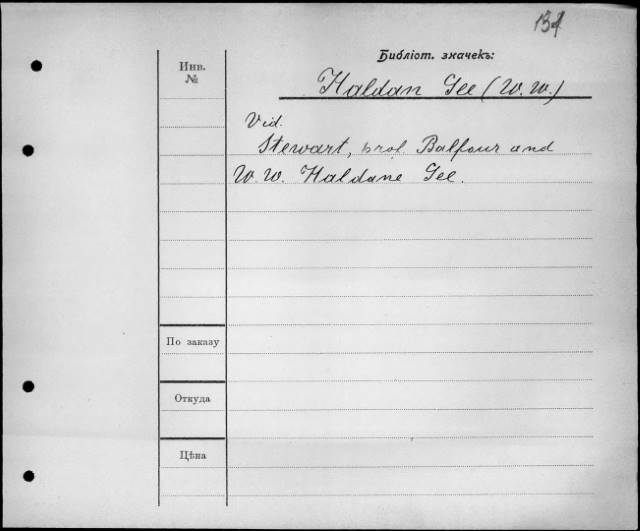 134
Библіот. значекъ:
Инв.
№
Haldan Gee (W. W.)
Vid.
Stewart, prof. Balfour and
W. W. Haldane Gee.
По заказу
Откуда
Цѣна